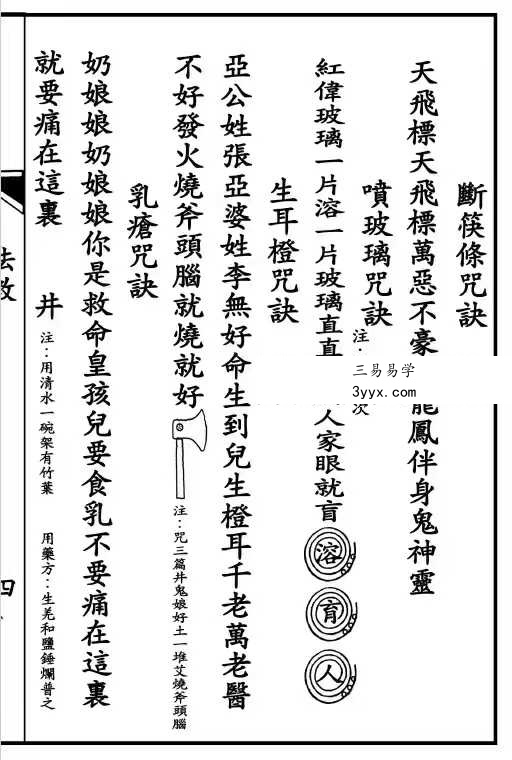 斷筷條咒訣
天飛標天飛標萬惡不豪
龍鳳伴身鬼神靈
噴玻璃咒訣
注：
次
紅偉玻璃一片溶一片玻璃直直
人家眼就盲
溶
育
人
生耳橙咒訣
亞公姓張亞婆姓李無好命生到兒生橙耳千老萬老醫
不好發火燒斧頭腦就燒就好
注：咒三篇井鬼娘好土一堆艾燒斧頭腦
乳瘡咒訣
奶娘娘奶娘娘你是救命皇孩兒要食乳不要痛在這裏
就要痛在這裏
井
注：用清水一碗架有竹葉
用藥方：生羌和鹽錘爛普之
法教
四
三易易学
3yyx.com